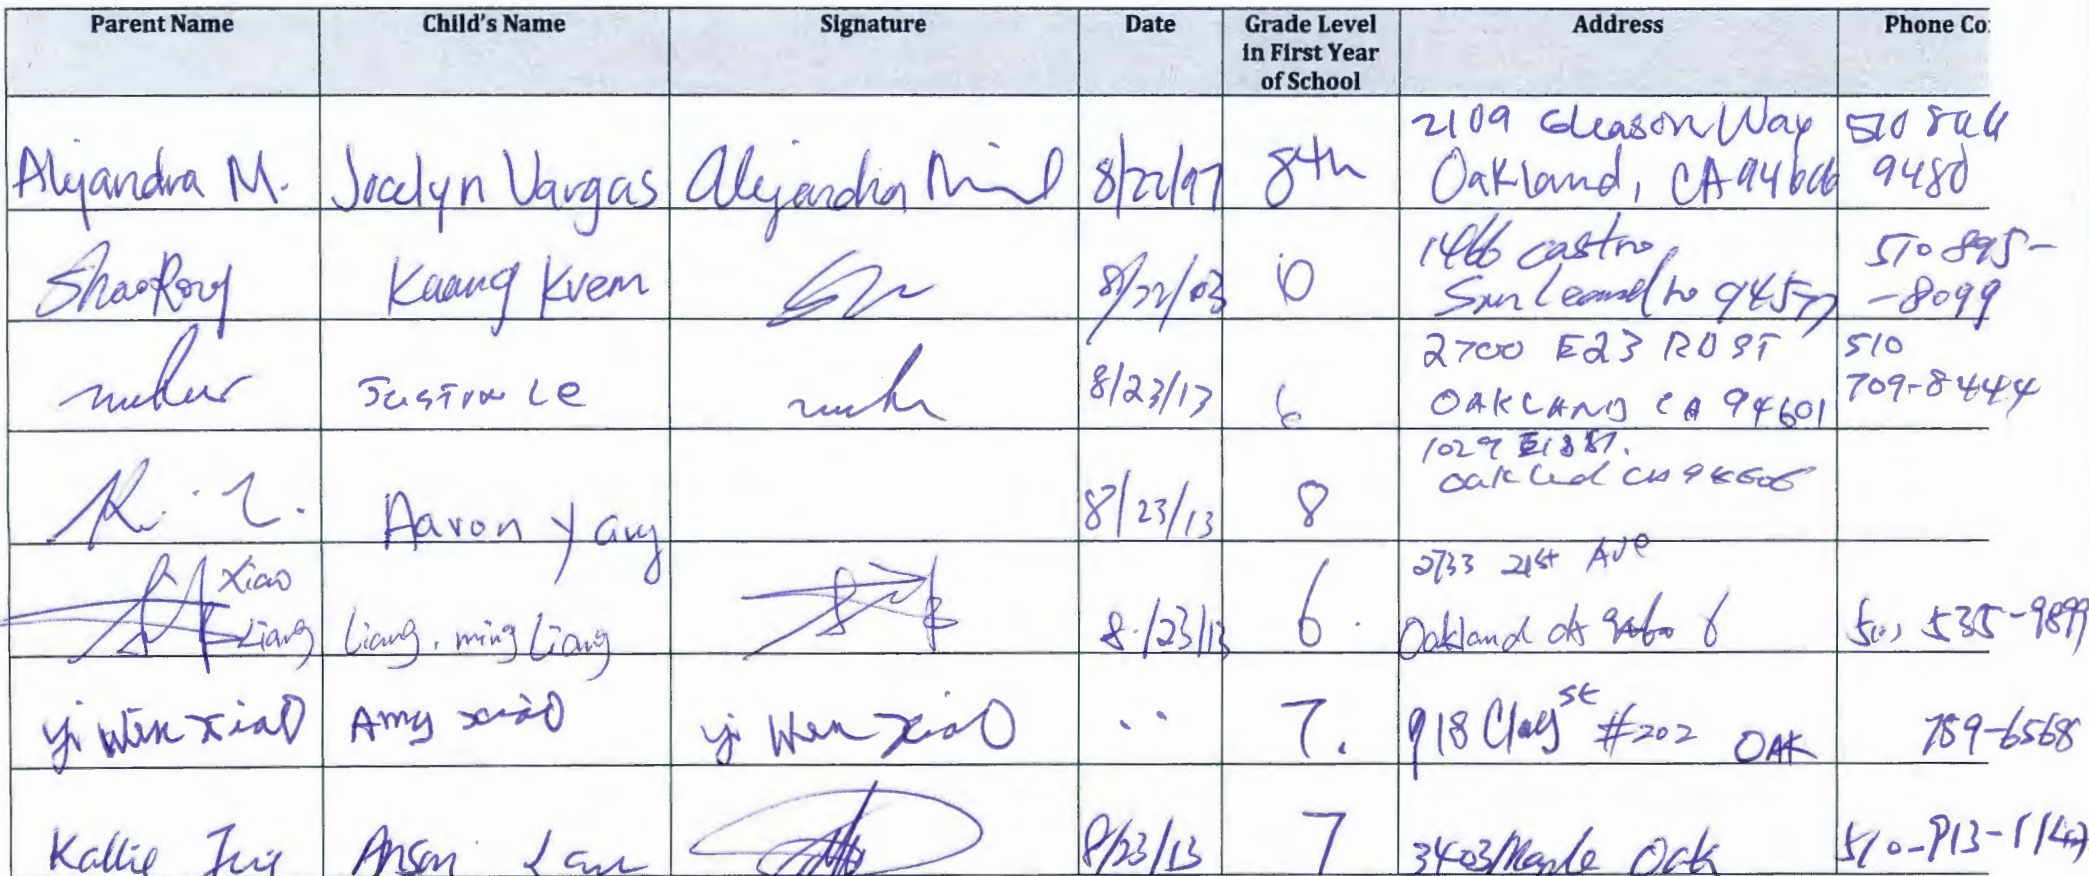 Parent Name Child's Name Signature Date Grade Level in First Year of School Address Phone Co
Alejandra M. Jocelyn Vargas Alejandra 8/22/97 8th 2109 Gleason Way Oakland, CA 94606 510 9480
Kuang 8/22/03 1466 castro San Leandro 94577 510 895--8099
Le 8/23/13 6 2700 E23 RD ST OAKLAND CA 94601 510 709-8444
Aaron Yang 8/23/13 8 1029 Oakland CA 94606
Xiao Liang Liang, ming Liang 8/23/13 6. 2733 21st Ave Oakland CA 535-9899
yi Wen Xiao Amy xiao yi Wen Xiao .. 7. 918 Clay st #202 OAK 789-6568
Kallie Anson Lau 8/23/13 7 3403 Maple Oak